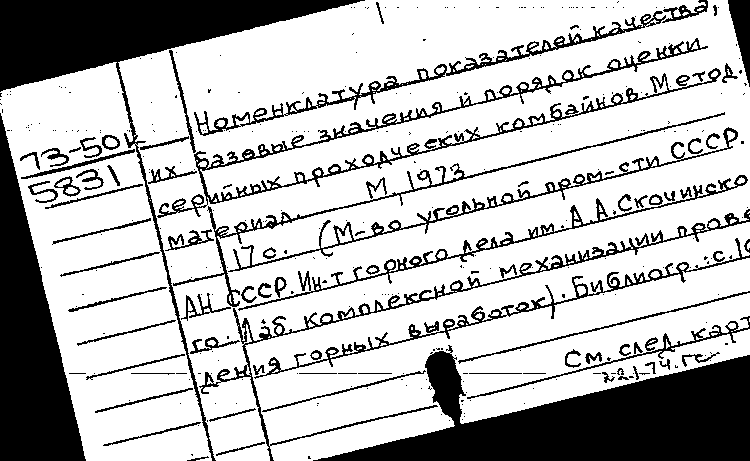 Номенклатура показателей качества,
73-50к
5831
их базовые значения и порядок оценки
серийных проходческих комбайнов. Метод.
материал. М., 1973
17 с. (М-во угольной пром-сти СССР.
АН СССР. Ин-т горного дела им. А.А. Скочинско
го. Лаб. комплексной механизации прове
дения горных выработок). Библиогр.: с.
См. след. карт
22.1.74. гс